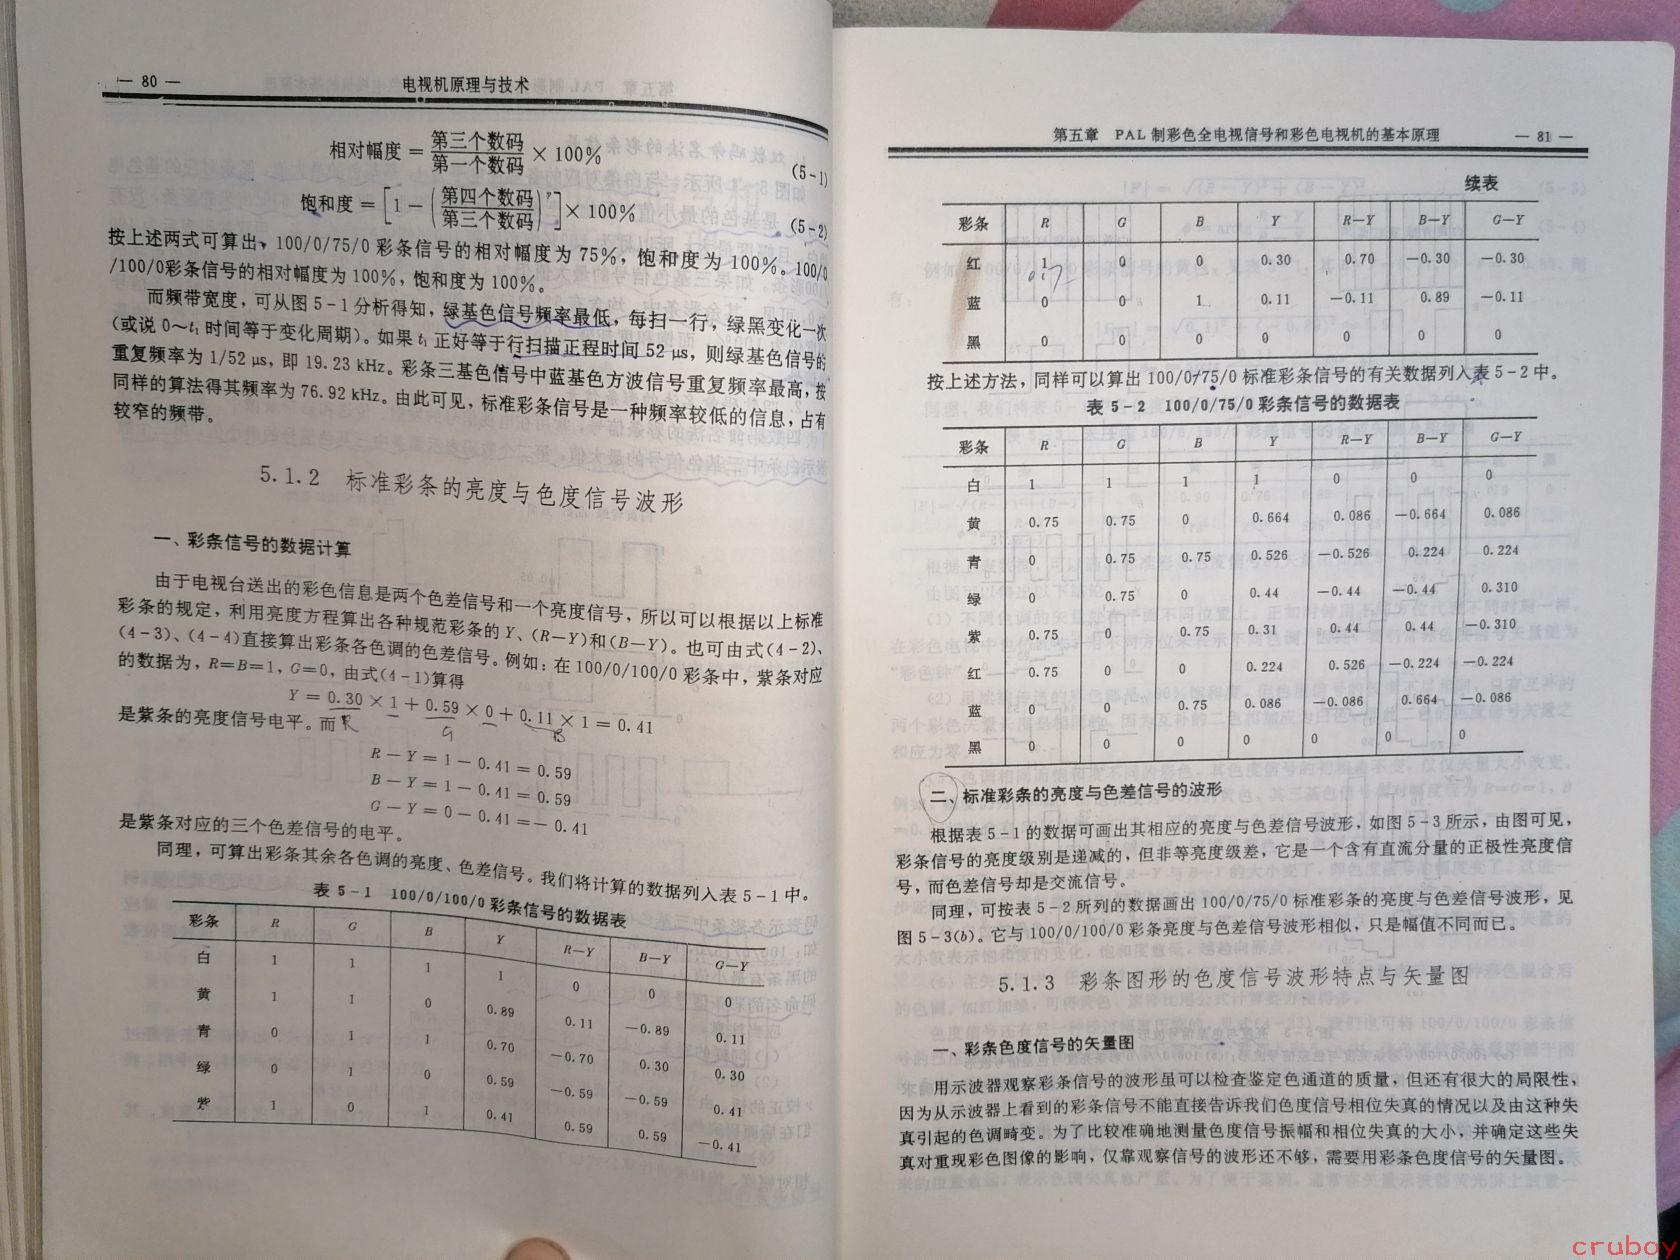 — 80 —
电视机原理与技术
相对幅度 = 第三个数码/第一个数码 × 100% (5-1)
饱和度 = [1 - (第四个数码/第三个数码)^γ] × 100% (5-2)
按上述两式可算出，100/0/75/0 彩条信号的相对幅度为 75%，饱和度为 100%。100/0
/100/0彩条信号的相对幅度为 100%，饱和度为 100%。
而频带宽度，可从图 5-1 分析得知，绿基色信号频率最低，每扫一行，绿黑变化一次
(或说 0～t₁ 时间等于变化周期)。如果 t₁ 正好等于行扫描正程时间 52 μs，则绿基色信号的
重复频率为 1/52 μs，即 19.23 kHz。彩条三基色信号中蓝基色方波信号重复频率最高，按
同样的算法得其频率为 76.92 kHz。由此可见，标准彩条信号是一种频率较低的信息，占有
较窄的频带。
5.1.2 标准彩条的亮度与色度信号波形
一、彩条信号的数据计算
由于电视台送出的彩色信息是两个色差信号和一个亮度信号，所以可以根据以上标准
彩条的规定，利用亮度方程算出各种规范彩条的 Y、(R—Y)和(B—Y)。也可由式(4-2)、
(4-3)、(4-4)直接算出彩条各色调的色差信号。例如：在 100/0/100/0 彩条中，紫条对应
的数据为，R=B=1，G=0，由式(4-1)算得
Y = 0.30 × 1 + 0.59 × 0 + 0.11 × 1 = 0.41
R G B
是紫条的亮度信号电平。而
R - Y = 1 - 0.41 = 0.59
B - Y = 1 - 0.41 = 0.59
G - Y = 0 - 0.41 = - 0.41
是紫条对应的三个色差信号的电平。
同理，可算出彩条其余各色调的亮度、色差信号。我们将计算的数据列入表 5-1 中。
表 5-1 100/0/100/0 彩条信号的数据表
彩条 R G B Y R—Y B—Y G—Y
白 1 1 1 1 0 0 0
黄 1 1 0 0.89 0.11 -0.89 0.11
青 0 1 1 0.70 -0.70 0.30 0.30
绿 0 1 0 0.59 -0.59 -0.59 0.41
紫 1 0 1 0.41 0.59 0.59 -0.41
第五章 PAL 制彩色全电视信号和彩色电视机的基本原理
— 81 —
续表
彩条 R G B Y R—Y B—Y G—Y
红 1 0 0 0.30 0.70 -0.30 -0.30
蓝 0 0 1 0.11 -0.11 0.89 -0.11
黑 0 0 0 0 0 0 0
按上述方法，同样可以算出 100/0/75/0 标准彩条信号的有关数据列入表 5-2 中。
表 5-2 100/0/75/0 彩条信号的数据表
彩条 R G B Y R—Y B—Y G—Y
白 1 1 1 1 0 0 0
黄 0.75 0.75 0 0.664 0.086 -0.664 0.086
青 0 0.75 0.75 0.526 -0.526 0.224 0.224
绿 0 0.75 0 0.44 -0.44 -0.44 0.310
紫 0.75 0 0.75 0.31 0.44 0.44 -0.310
红 0.75 0 0 0.224 0.526 -0.224 -0.224
蓝 0 0 0.75 0.086 -0.086 0.664 -0.086
黑 0 0 0 0 0 0 0
二、标准彩条的亮度与色差信号的波形
根据表 5-1 的数据可画出其相应的亮度与色差信号波形，如图 5-3 所示，由图可见，
彩条信号的亮度级别是递减的，但非等亮度级差，它是一个含有直流分量的正极性亮度信
号，而色差信号却是交流信号。
同理，可按表 5-2 所列的数据画出 100/0/75/0 标准彩条的亮度与色差信号波形，见
图 5-3(b)。它与 100/0/100/0 彩条亮度与色差信号波形相似，只是幅值不同而已。
5.1.3 彩条图形的色度信号波形特点与矢量图
一、彩条色度信号的矢量图
用示波器观察彩条信号的波形虽可以检查鉴定色通道的质量，但还有很大的局限性，
因为从示波器上看到的彩条信号不能直接告诉我们色度信号相位失真的情况以及由这种失
真引起的色调畸变。为了比较准确地测量色度信号振幅和相位失真的大小，并确定这些失
真对重现彩色图像的影响，仅靠观察信号的波形还不够，需要用彩条色度信号的矢量图。
cruboy